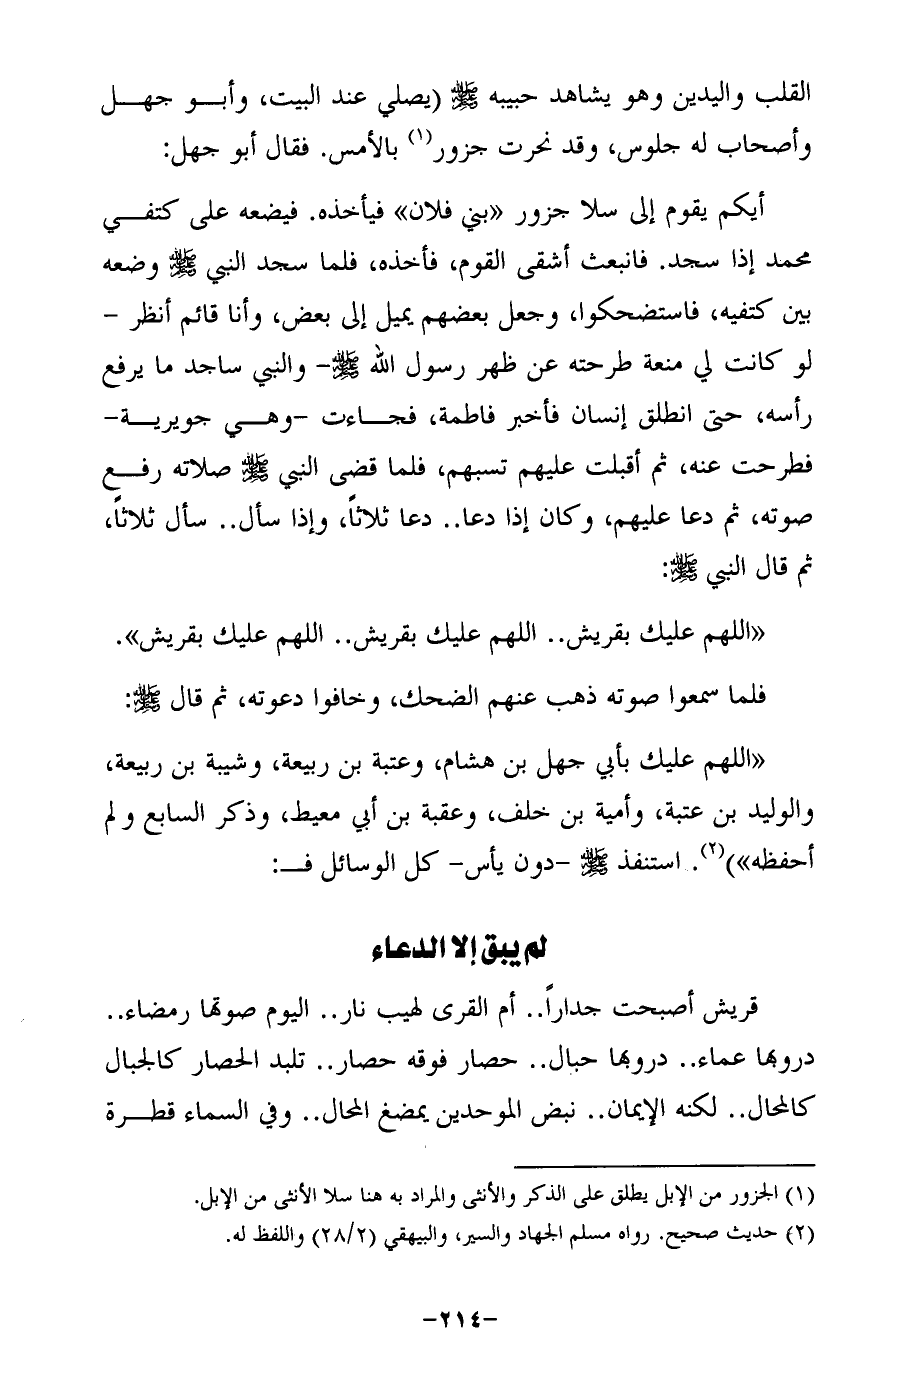 القلب واليدين وهو يشاهد حبيبه ﷺ (يصلي عند البيت، وأبـــو جهـــل
وأصحاب له جلوس، وقد نحرت جزور(١) بالأمس. فقال أبو جهل:
أيكم يقوم إلى سلا جزور «بني فلان» فيأخذه. فيضعه على كتفـــي
محمد إذا سجد. فانبعث أشقى القوم، فأخذه، فلما سجد النبي ﷺ وضعه
بين كتفيه، فاستضحكوا، وجعل بعضهم يميل إلى بعض، وأنا قائم أنظر –
لو كانت لي منعة طرحته عن ظهر رسول الله ﷺ– والنبي ساجد ما يرفع
رأسه، حتى انطلق إنسان فأخبر فاطمة، فجـــاءت –وهـــي جويريـــة–
فطرحت عنه، ثم أقبلت عليهم تسبهم، فلما قضى النبي ﷺ صلاته رفـــع
صوته، ثم دعا عليهم، وكان إذا دعا.. دعا ثلاثاً، وإذا سأل.. سأل ثلاثاً،
ثم قال النبي ﷺ:
«اللهم عليك بقريش.. اللهم عليك بقريش.. اللهم عليك بقريش».
فلما سمعوا صوته ذهب عنهم الضحك، وخافوا دعوته، ثم قال ﷺ:
«اللهم عليك بأبي جهل بن هشام، وعتبة بن ربيعة، وشيبة بن ربيعة،
والوليد بن عتبة، وأمية بن خلف، وعقبة بن أبي معيط، وذكر السابع و لم
أحفظه»)(٢). استنفذ ﷺ –دون يأس– كل الوسائل فـــ:
لم يبق إلا الدعاء
قريش أصبحت جداراً.. أم القرى لهيب نار.. اليوم صوتها رمضاء..
دروبها عماء.. دروبها حبال.. حصار فوقه حصار.. تلبد الحصار كالجبال
كالمحال.. لكنه الإيمان.. نبض الموحدين يمضغ المحال.. وفي السماء قطـــرة
(١) الجزور من الإبل يطلق على الذكر والأنثى والمراد به هنا سلا الأنثى من الإبل.
(٢) حديث صحيح. رواه مسلم الجهاد والسير، والبيهقي (٢٨/٢) واللفظ له.
–٢١٤–